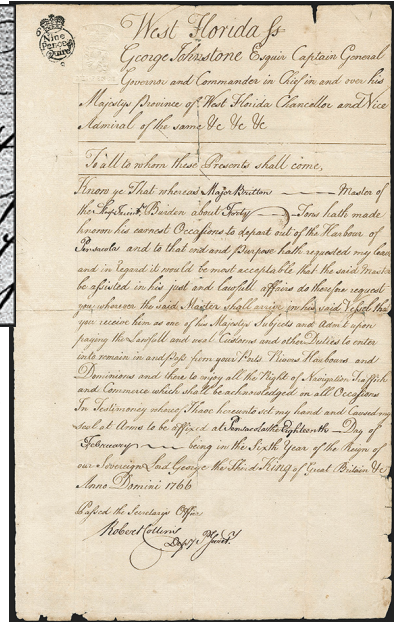 Nine Pence pr Quire
West Florida ss
George Johnstone Esquir Captain General
Governor and Commander in Chief in and over his
Majestys Province of West Florida Chancellor and Vice
Admiral of the same &c &c &c
To all to whom these Presents shall come,
Know ye That whereas Major Britton Master of
the Burden about Forty Tons hath made
known his earnest Occasions to depart out of the Harbour of
Pensacola and to that end and Purpose hath requested my leave
and in regard it would be most acceptable that the said Master
be assisted in his just and lawfull affairs do therefore request
you, wherever the said Master shall arrive in his said Vessel that
you receive him as one of his Majestys Subjects and Admit upon
paying the Lawfull and usual Customs and other Duties to enter
into remain in and pass from your Ports Rivers Harbours and
Dominions and there to enjoy all the Right of Navigation Traffick
and Commerce which shall be acknowledged on all Occasions
In Testimony whereof I have hereunto set my hand and caused my
seal at Arms to be affixed at Pensacola the Eighteenth Day of
February being in the Sixth Year of the Reign of
our Sovereign Lord George the Third King of Great Britain &c
Anno Domini 1766
Passed the Secretarys Office
Robert Collins
Depy